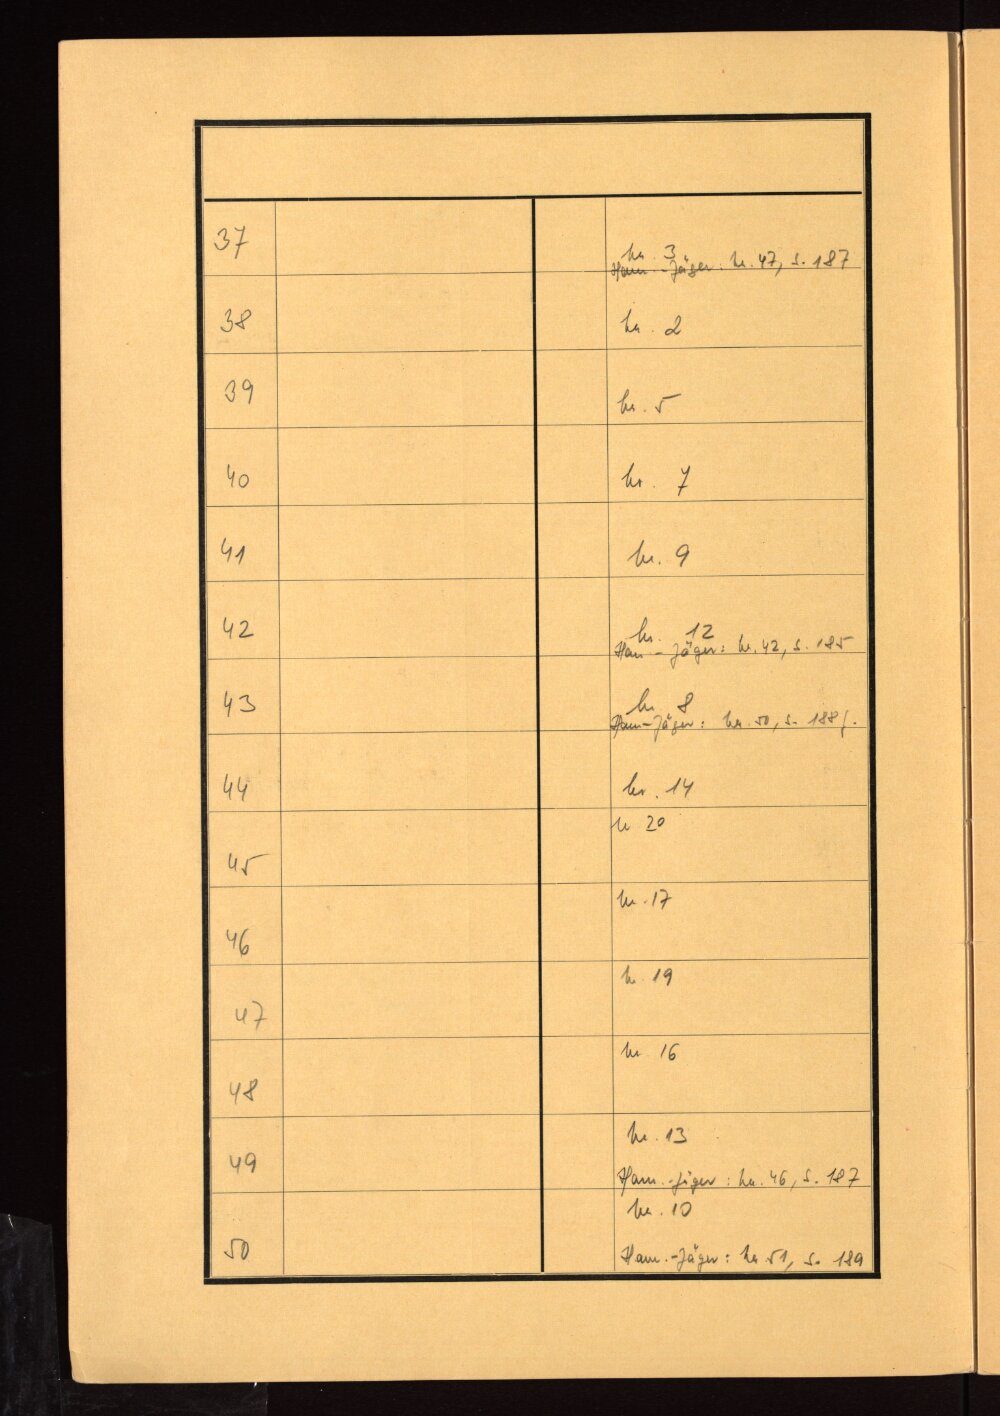 37
Nr. 3
Ham.-Jäger: Nr. 47, S. 187
38
Nr. 2
39
Nr. 5
40
Nr. 7
41
Nr. 9
42
Nr. 12
Ham.-Jäger: Nr. 42, S. 185
43
Nr. 8
Ham-Jäger: Nr. 50, S. 188f.
44
Nr. 14
Nr 20
45
Nr. 17
46
Nr. 19
47
Nr. 16
48
Nr. 13
49
Ham.-Jäger: Nr. 46, S. 187
Nr. 10
50
Ham.-Jäger: Nr 51, S. 189